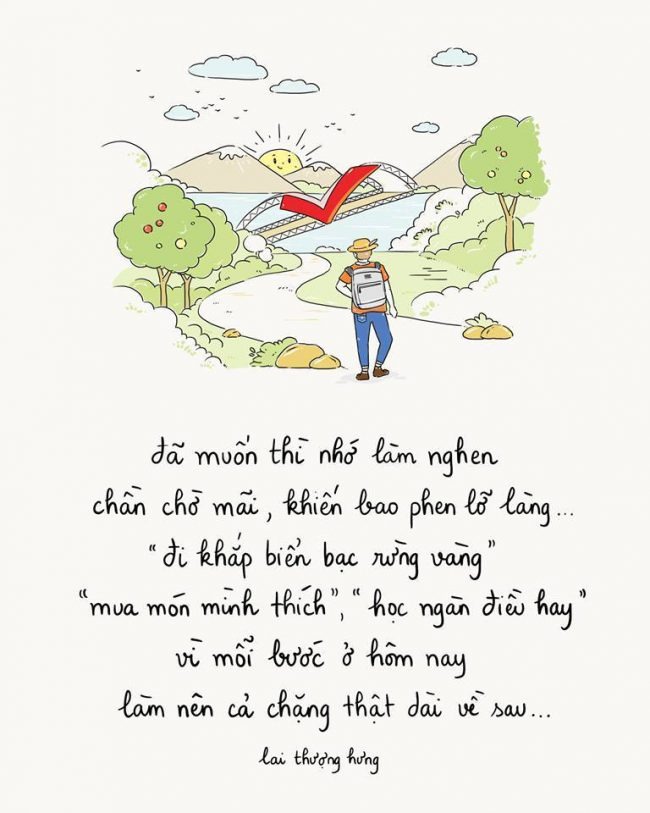 đã muốn thì nhớ làm nghen
chần chờ mãi, khiến bao phen lỡ làng...
"đi khắp biển bạc rừng vàng"
"mua món mình thích", "học ngàn điều hay"
vì mỗi bước ở hôm nay
làm nên cả chặng thật dài về sau...
lai thượng hưng